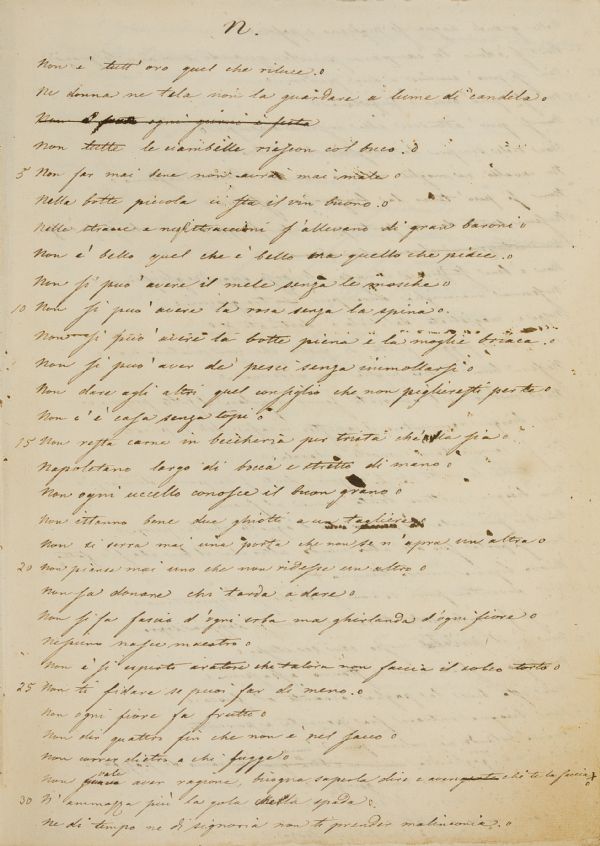 N.
Non è tutt' oro quel che riluce.
Ne donna ne tela non la guardare a lume di candela
Non ogni è festa
Non tutte le ciambelle riescon col buco.
5 Non far mai bene non avrai mai male
Nella botte piccola ci sta il vin buono.
Nelle stracce e negli straccioni s'allevano di gran baroni
Non è bello quel che è bello ma quello che piace.
Non si può avere il mele senza le mosche
10 Non si può avere la rosa senza la spina
Non si può avere la botte piena e la moglie briaca.
Non si può aver de' pesci senza immollarsi
Non dare agli altri quel consiglio che non piglieresti per te
Non c'è casa senza topi
15 Non resta carne in beccheria per trista che la sia
Napoletano largo di bocca e stretto di mano
Non ogni uccello conosce il buon grano
Non istanno bene due ghiotti a un tagliere
Non si serra mai una porta che non se n'apra un'altra
20 Non pianse mai uno che non ridesse un altro
Non sa donare chi tarda a dare
Non si fa fascio d'ogni erba ma ghirlanda d'ogni fiore
Nessuno nasce maestro
Non è sì esperto aratore che talora non faccia il solco torto
25 Non ti fidare se puoi far di meno.
Non ogni fiore fa frutto
Non dir quattro fin che non è nel sacco
Non correr dietro a chi fugge
Non vale aver ragione, bisogna saperla dire e aver chi te la faccia
30 N'ammazza più la gola che la spada.
Ne di tempo ne di signoria non ti prender malinconia.